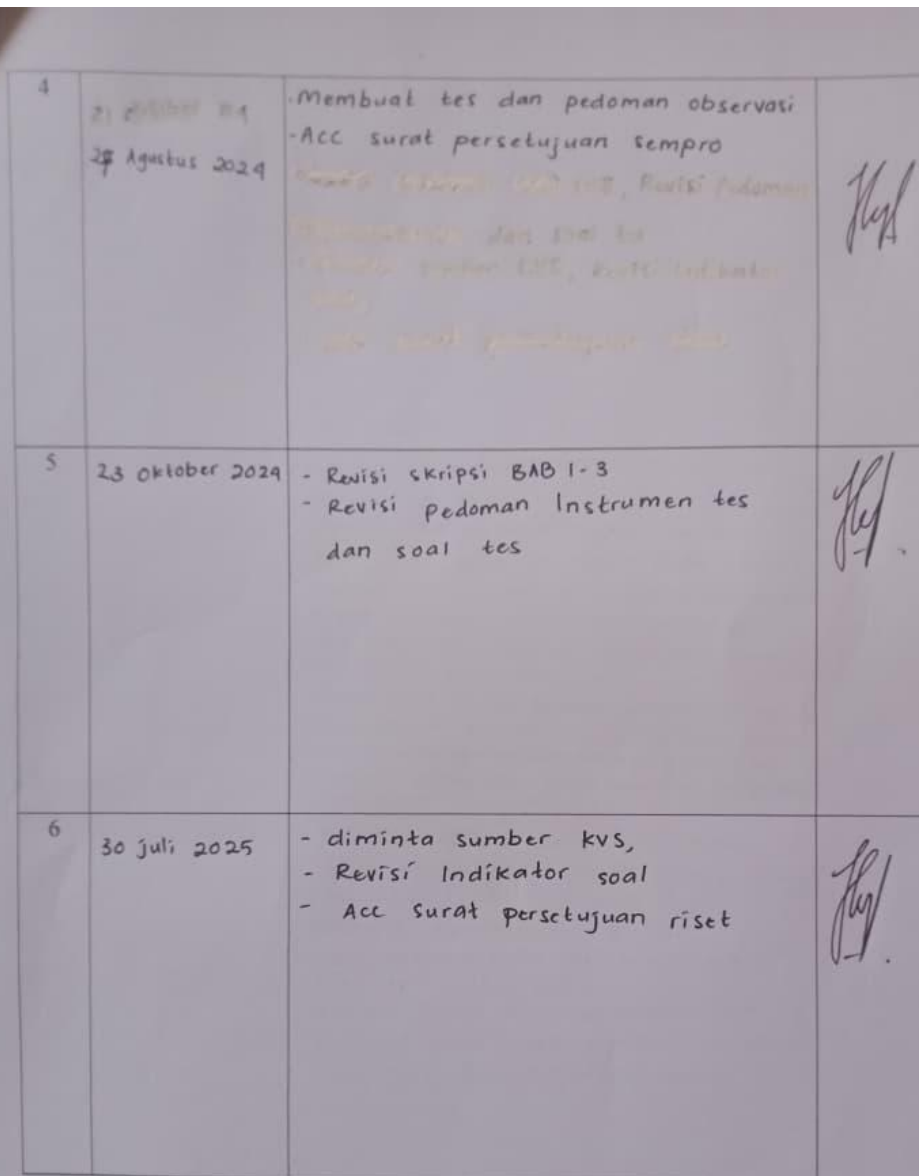 4
Agustus 2024
- Membuat tes dan pedoman observasi
- Acc surat persetujuan sempro
Revisi Pedoman
dan soal tes
5
23 Oktober 2024
- Revisi skripsi BAB 1-3
- Revisi pedoman Instrumen tes
dan soal tes
6
30 juli 2025
- diminta sumber kvs,
- Revisi Indikator soal
- Acc surat persetujuan riset